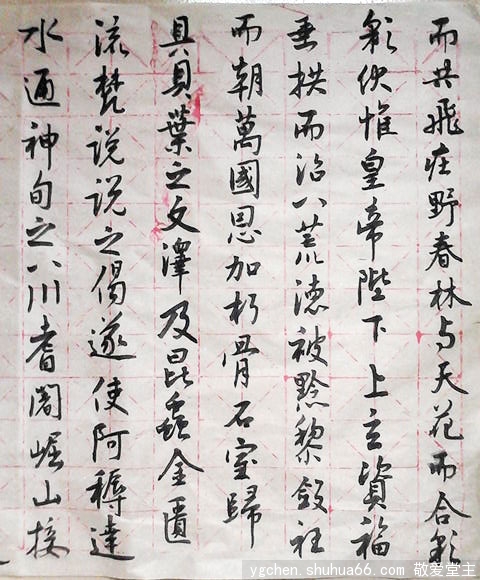 而共飛庄野春林与天花而合彩
彩伏惟皇帝陛下上玄資福
垂拱而治八荒德被黔黎斂衽
而朝萬國恩加朽骨石室歸
具貝葉之文澤及昆蟲金匱
流梵说说之偈遂使阿耨達
水通神甸之八川耆闍崛山接
ygchen.shuhua66.com 敬爱堂主